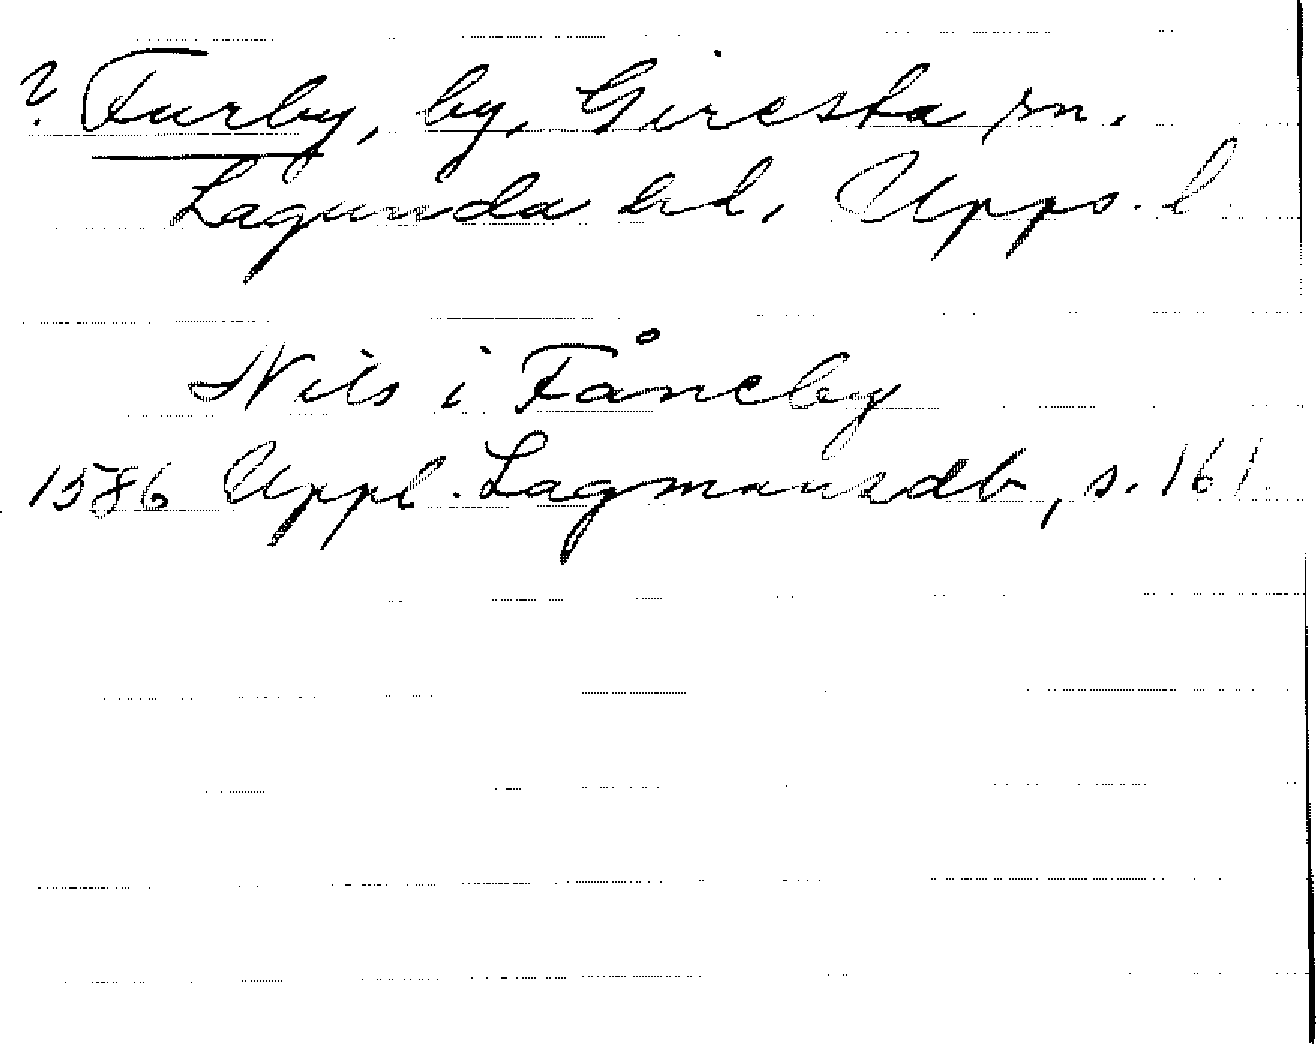 ? Furby, by, Giresta sn.
Lagunda hd, Upps. l.
Nils i Fåneby
1586 Uppl. Lagmansdb, s. 161.